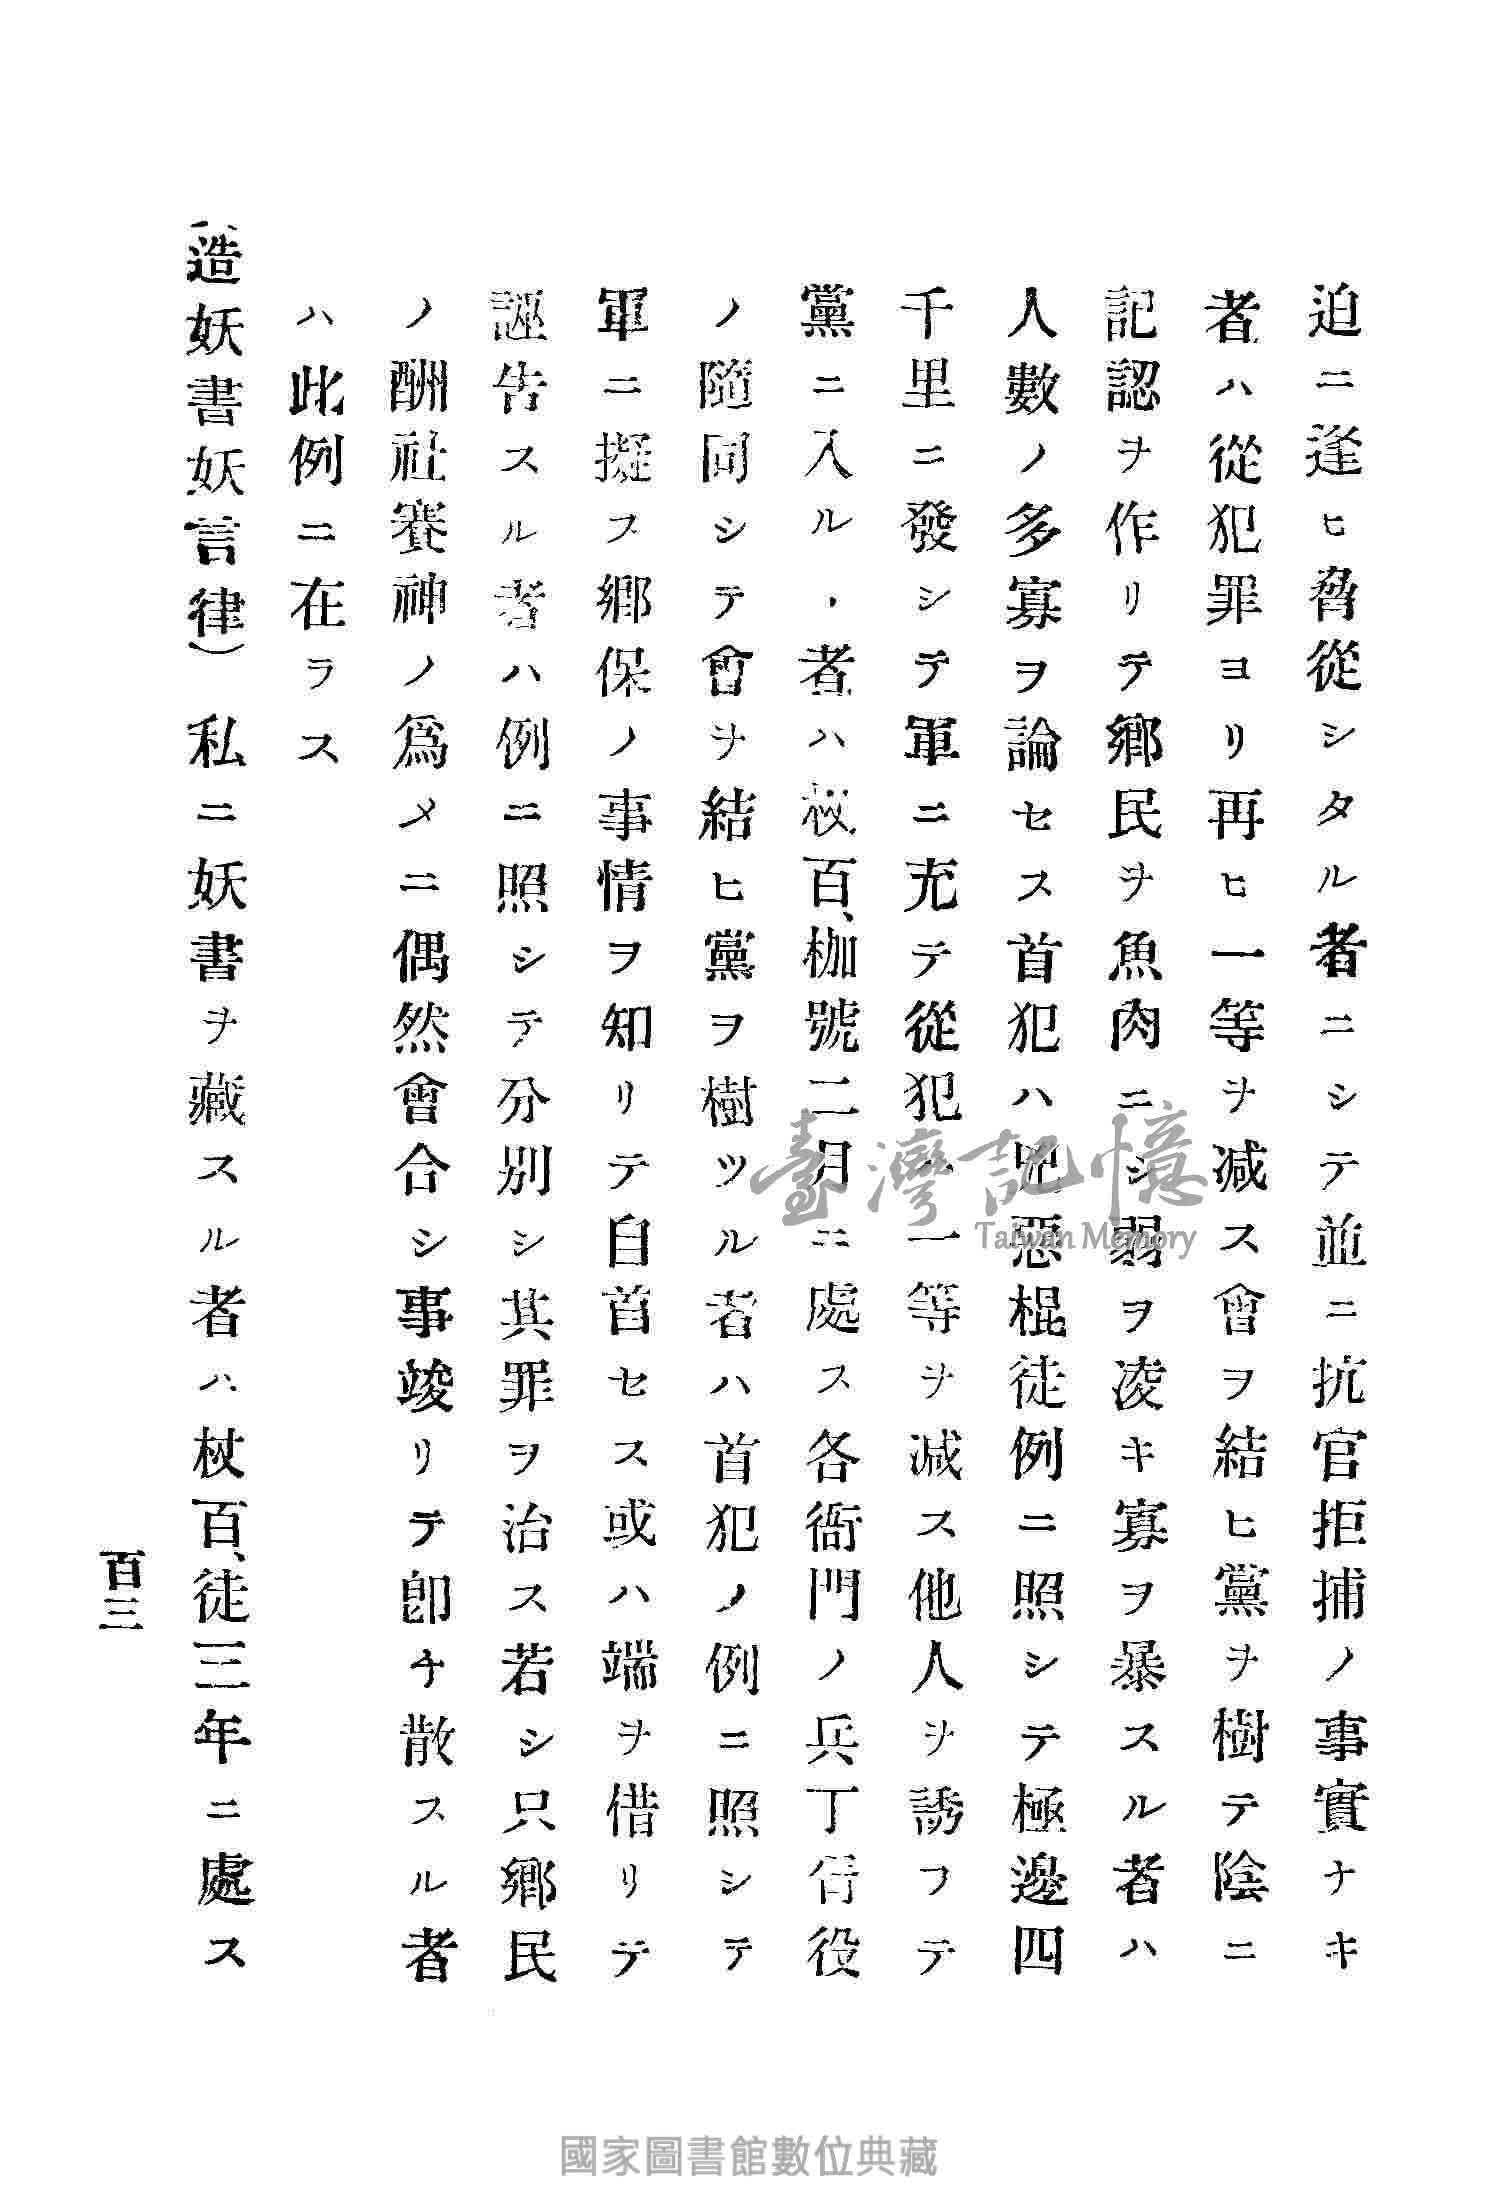 迫ニ逢ヒ脅從シタル者ニシテ並ニ抗官拒捕ノ事實ナキ
者ハ從犯罪ヨリ再ヒ一等ヲ减ス會ヲ結ヒ黨ヲ樹テ陰ニ
記認ヲ作リテ鄕民ヲ魚肉ニシ弱ヲ凌キ寡ヲ暴スル者ハ
人數ノ多寡ヲ論セス首犯ハ兇惡棍徒例ニ照シテ極邊四
千里ニ發シテ軍ニ充テ從犯ハ一等ヲ减ス他人ヲ誘フテ
黨ニ入ル、者ハ杖百、枷號二月ニ處ス各衙門ノ兵丁胥役
ノ隨同シテ會ヲ結ヒ黨ヲ樹ツル者ハ首犯ノ例ニ照シテ
軍ニ擬ス鄕保ノ事情ヲ知リテ自首セス或ハ端ヲ借リテ
誣告スル者ハ例ニ照シテ分別シ其罪ヲ治ス若シ只鄕民
ノ酬社賽神ノ爲メニ偶然會合シ事竣リテ卽チ散スル者
ハ此例ニ在ラス
造妖書妖言律)私ニ妖書ヲ藏スル者ハ、杖百、徒三年ニ處ス
百三
臺灣記憶
Taiwan Memory
國家圖書館數位典藏